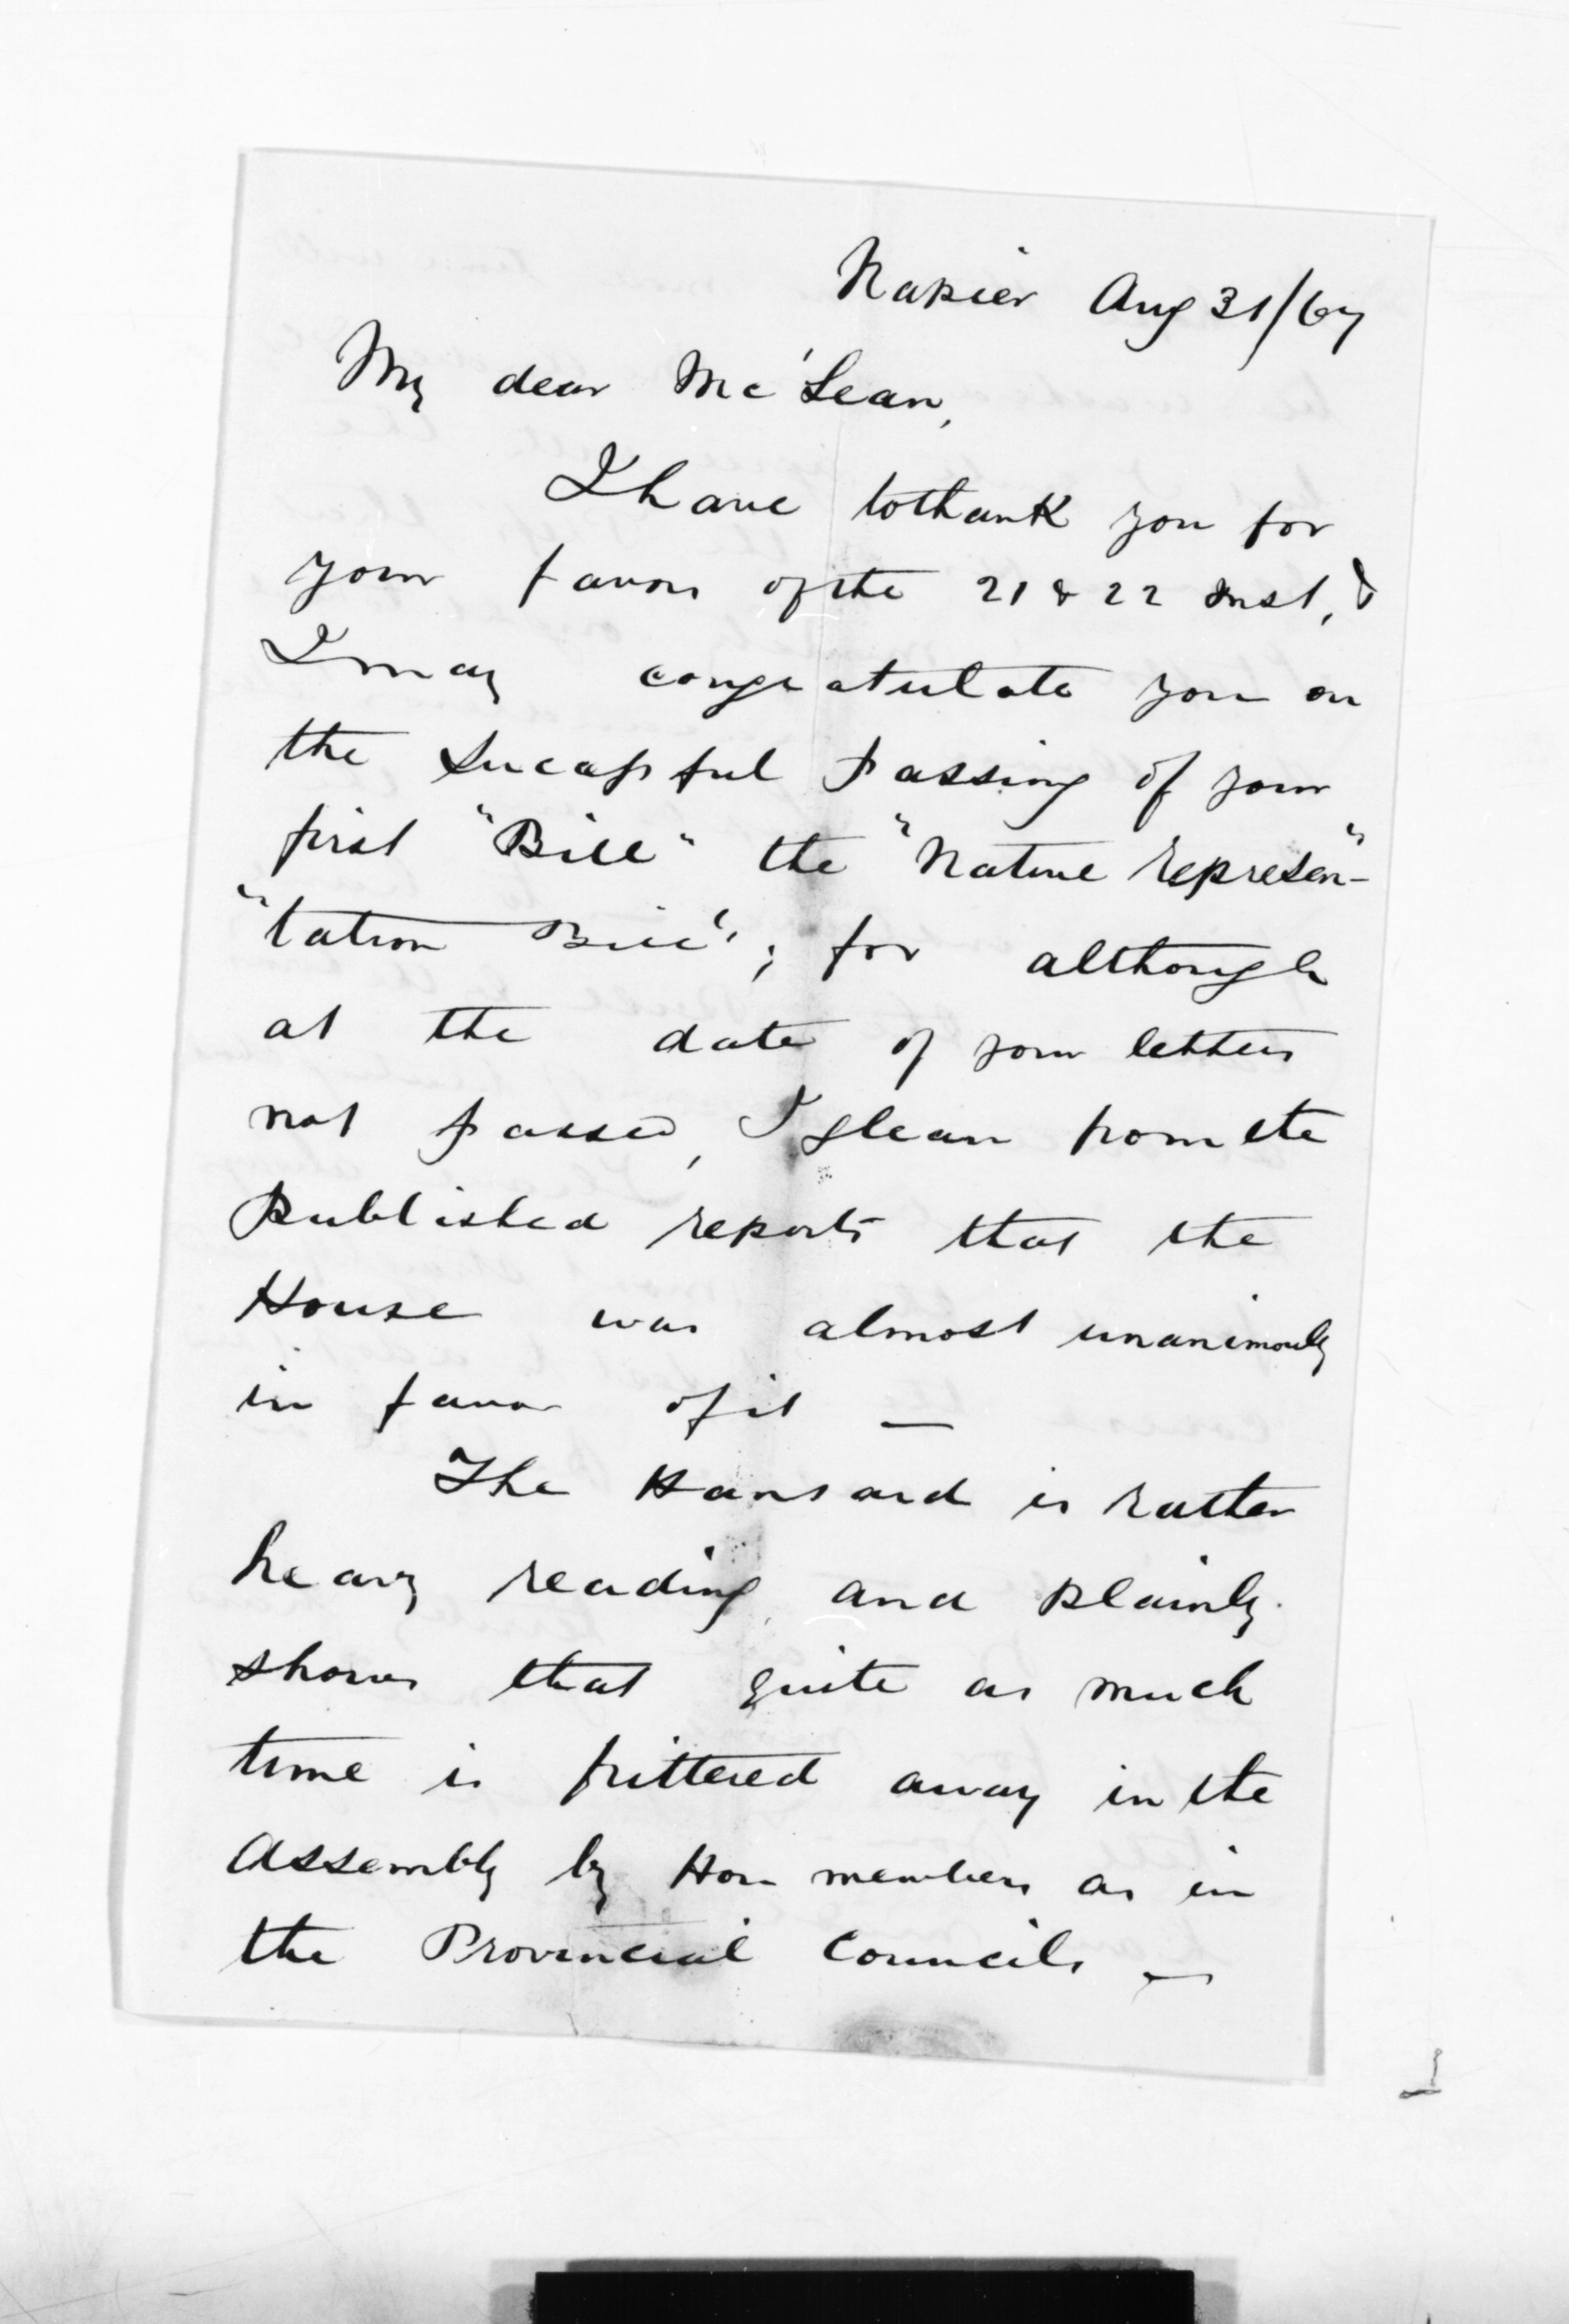 Napier Aug 31/67
My dear McLean,
I have to thank you for
your favors of the 21 & 22 Inst, &
I may congratulate you on
the Sucessful passing of your
first "Bill" the "Native represen-"
"tation Bill"; for although
at the date of your letters
not passed, I glean from the
Published reports that the
House was almost unanimously
in favor of it —
The Hansard is rather
heavy reading, and plainly
shows that quite as much
time is frittered away in the
Assembly by Hon members as in
the Provincial Councils —